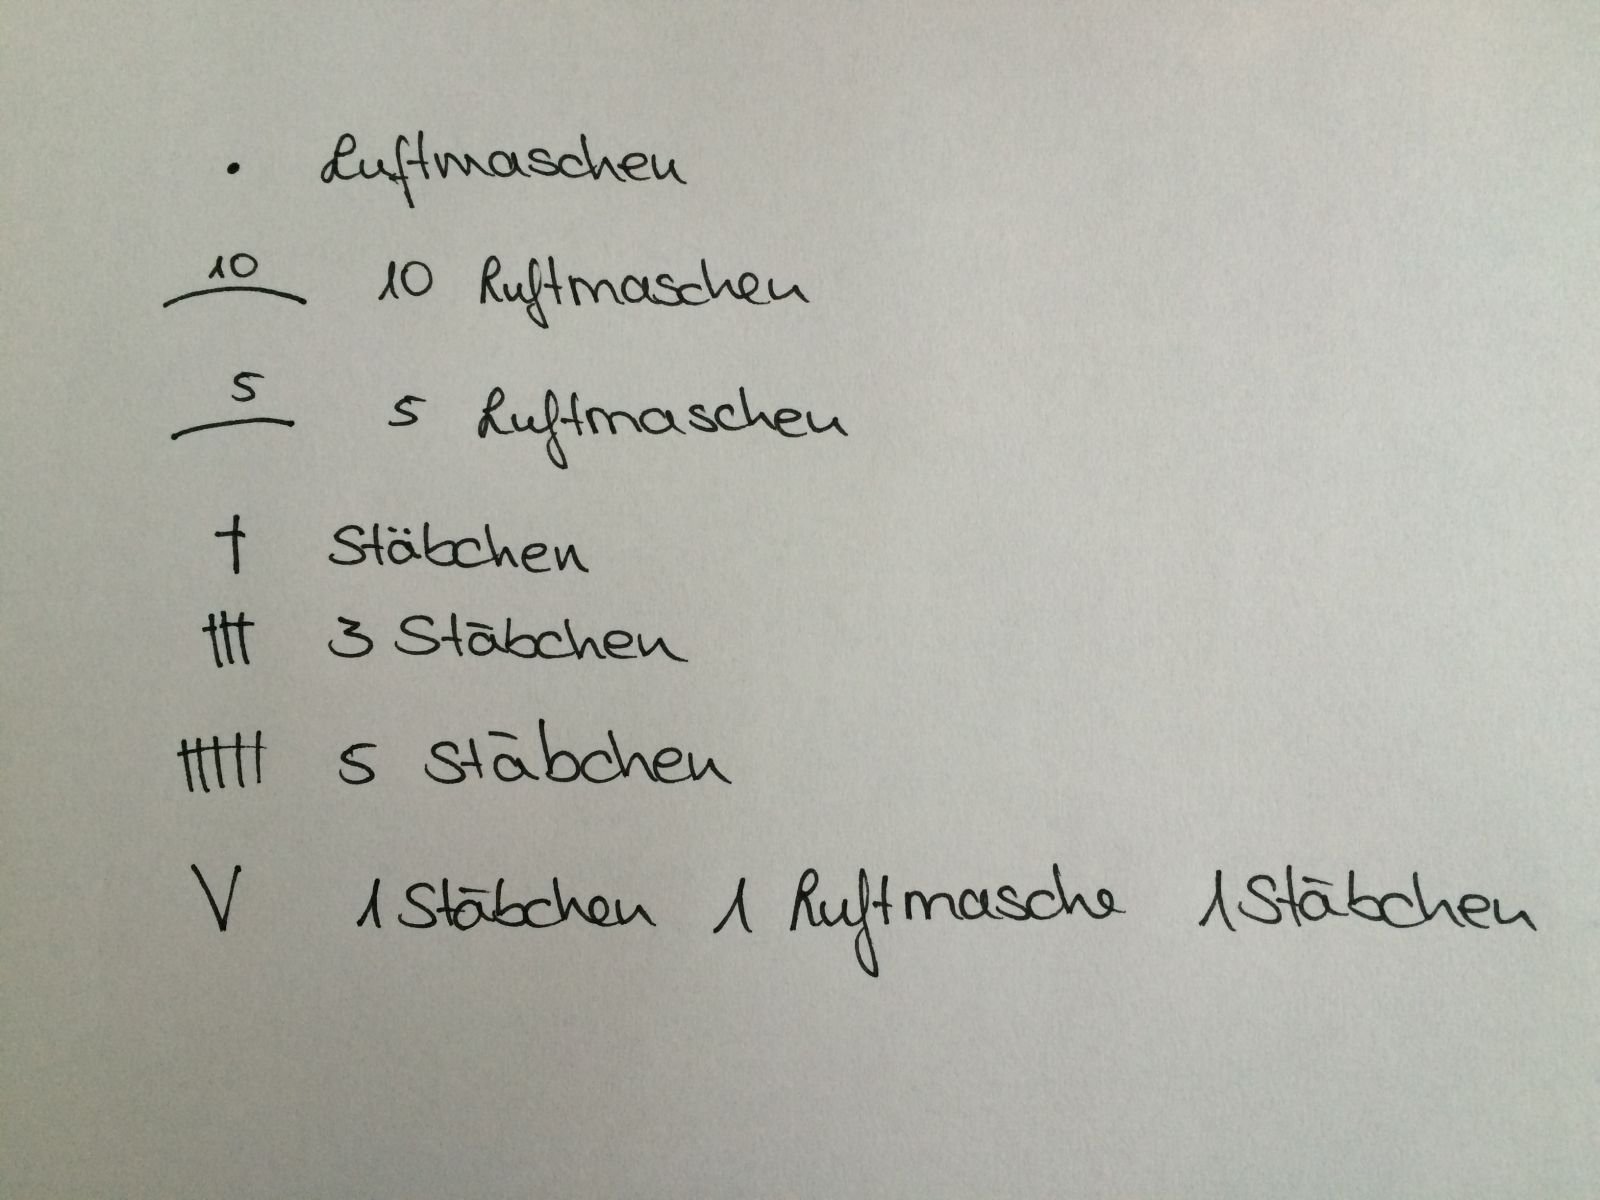 · Luftmaschen
10 10 Luftmaschen
5 5 Luftmaschen
† Stäbchen
††† 3 Stäbchen
††††† 5 Stäbchen
V 1 Stäbchen 1 Luftmasche 1 Stäbchen